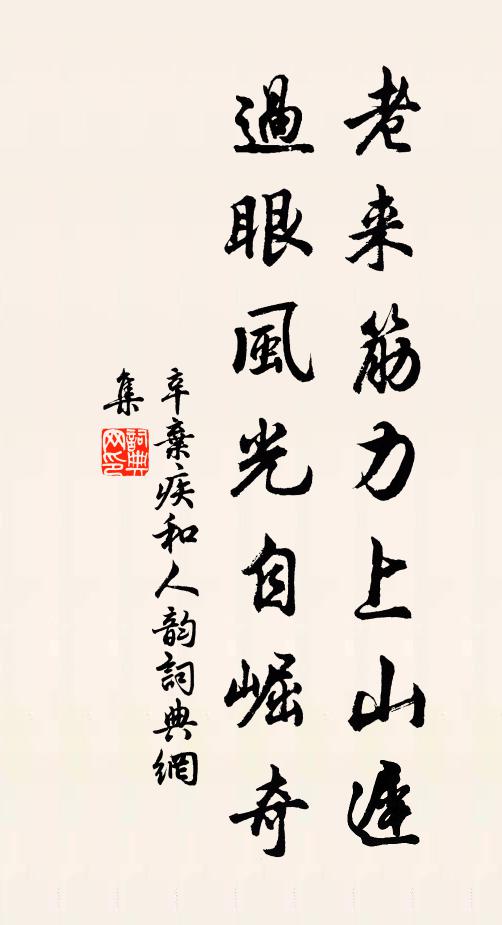 老来筋力上山遲
過眼風光自崛奇
辛棄疾和人韵詞典網
集
詞典
网印